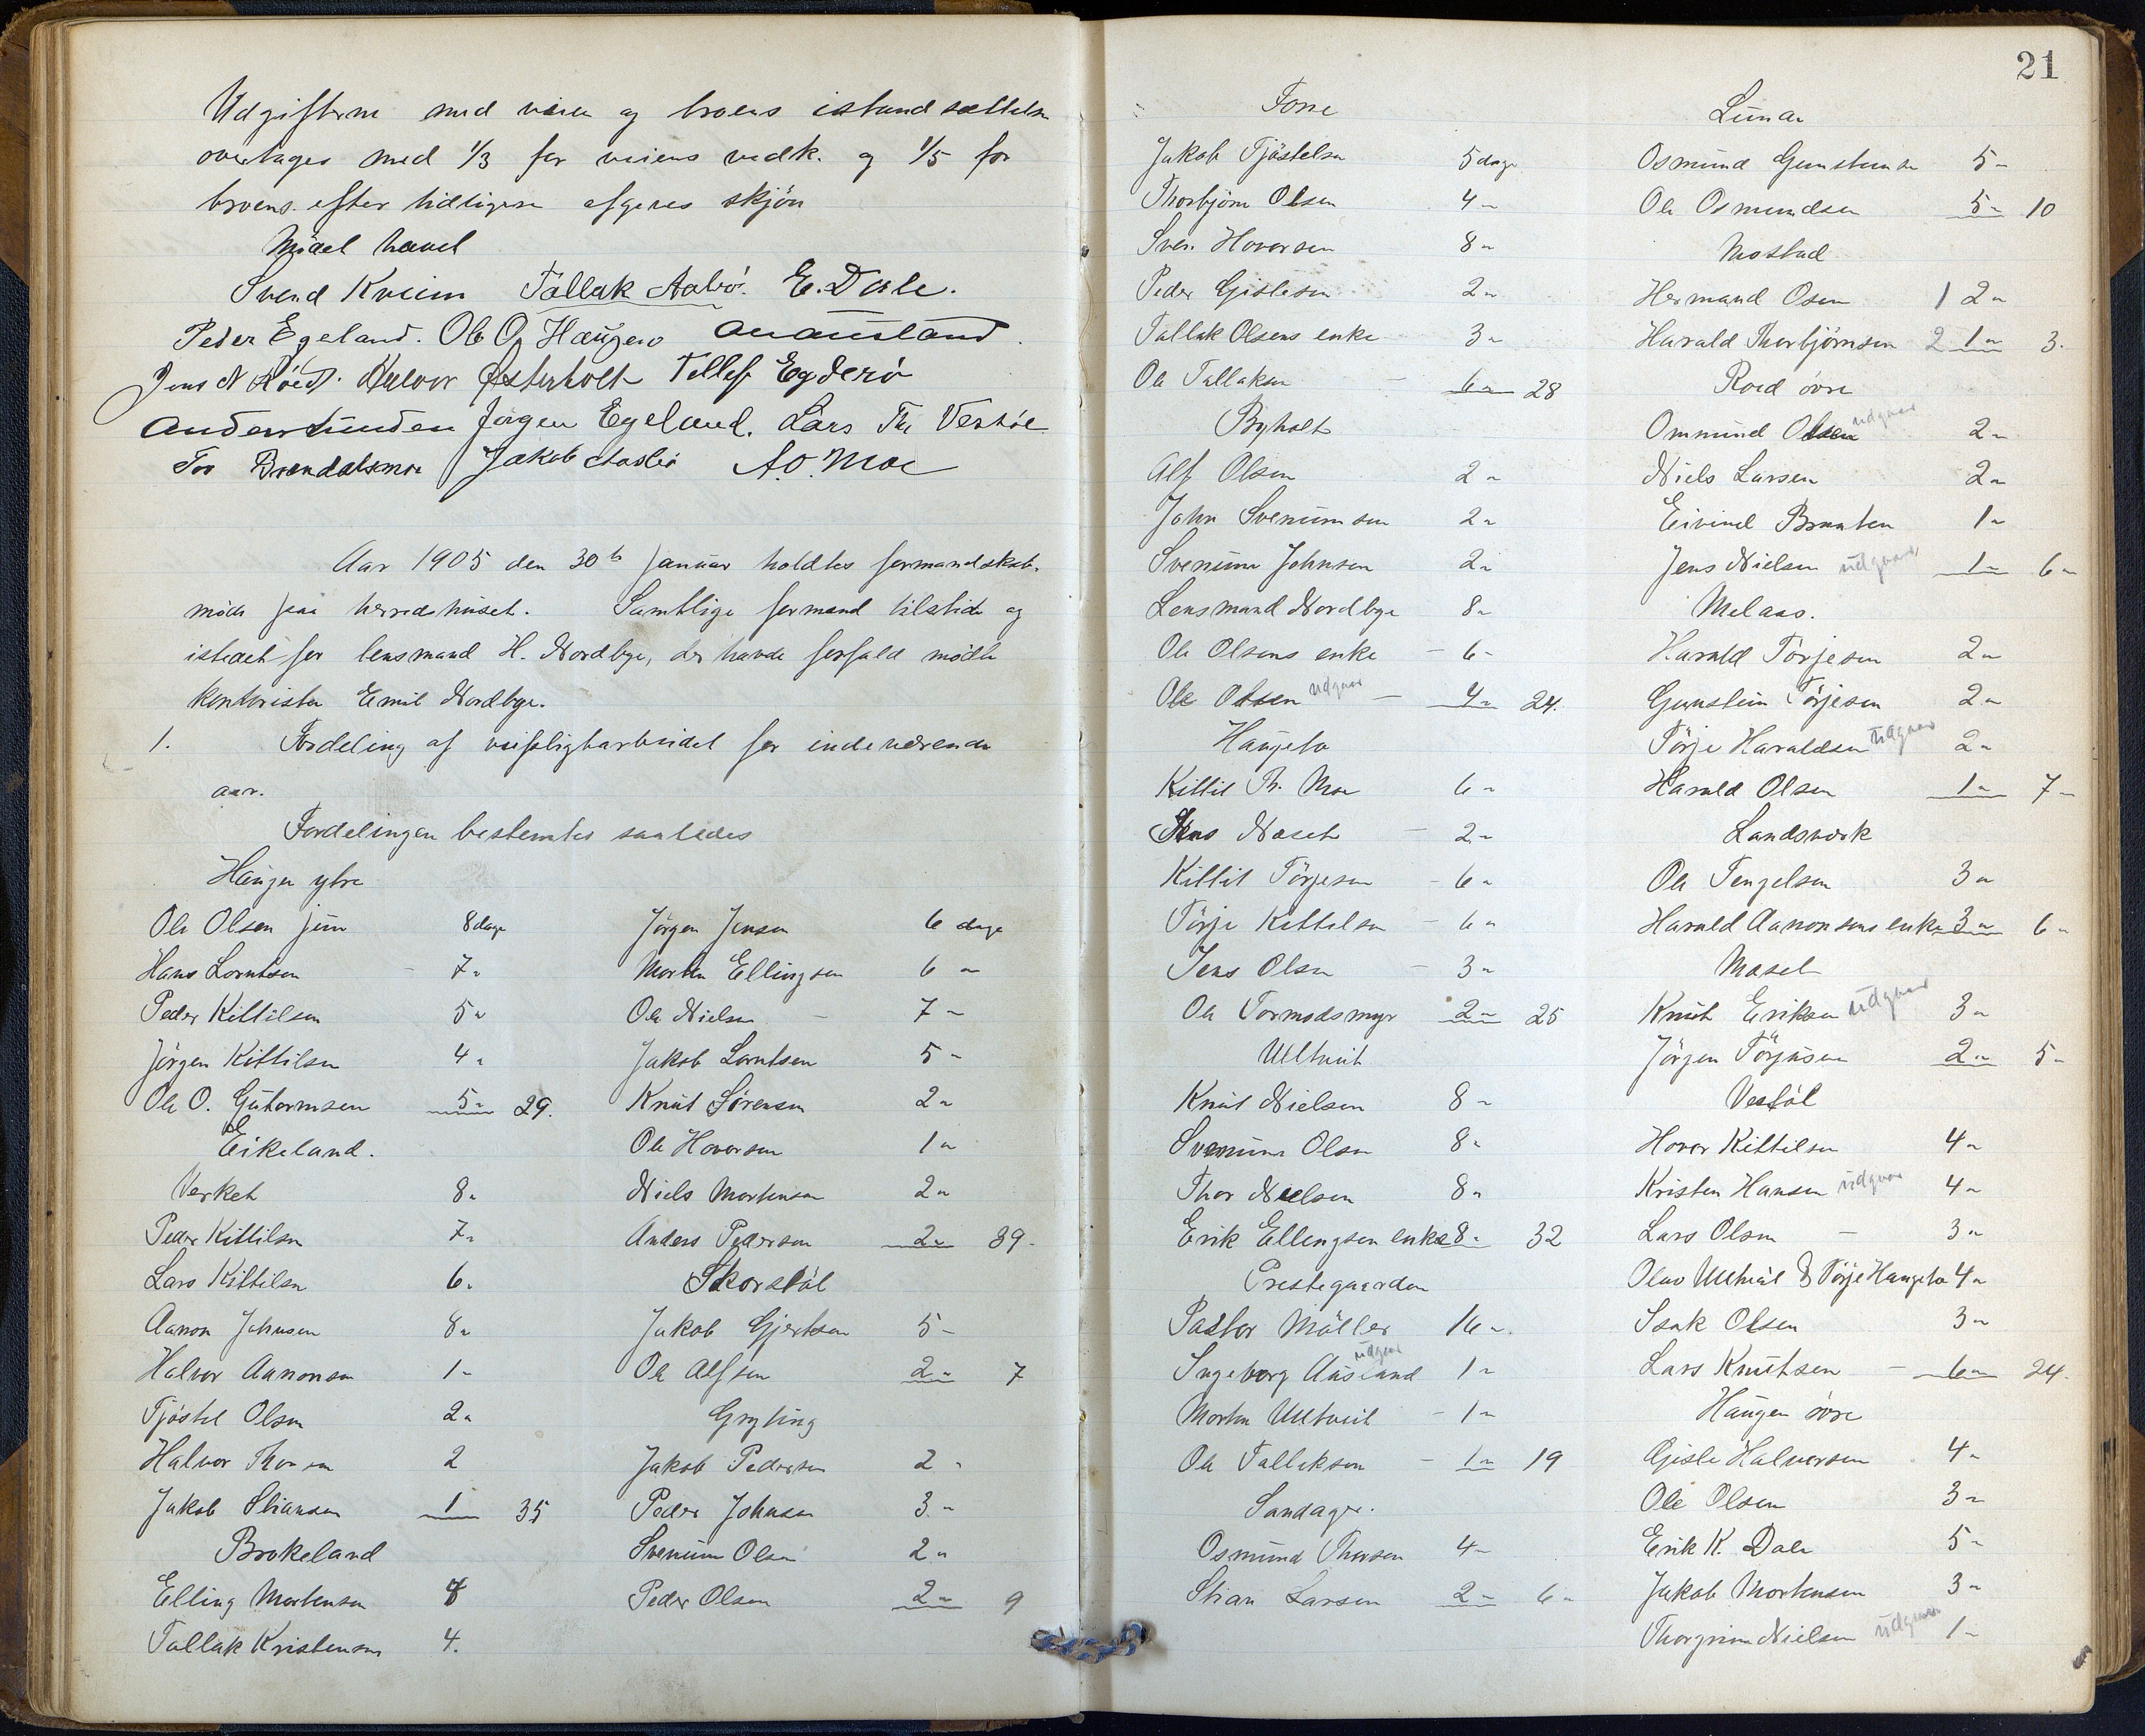 Udgifterne med veien og broens istandsættelse
overtages med 1/3 for veiens vedk. og 1/5 for
broens efter tidligere afgives skjøn
Mødet hævet
Svend Kveim Tallak Aabø. E. Dale.
Peder Egeland. Ole O. Haugen
Jens N Röed. Halvor Østerholt Tellef Egderö
Anders Lunden Jørgen Egeland. Lars Th Vestöl
Tor Brændalsmo Jakob Aasbö A.O. Moe
Aar 1905 den 30te januar holdtes formandskabs-
møde paa herredshuset. Samtlige formænd tilstede og
istedet for lensmand H. Nordbye, der havde forfald mødte
kontorister Emil Nordbye.
1. Fordeling af veipligtarbeidet for indeværende
aar.
Fordelingen bestemtes saaledes
Haugen ytre
Ole Olsen jun 8 dage
Hans Lorntsen 7 "
Peder Kittilsen 5 "
Jörgen Kittilsen 4 "
Ole O. Gutormsen 5 " 29.
Eikeland.
Verket 8 "
Peder Kittilsen 7 "
Lars Kittilsen 6 "
Aanon Johnsen 8 "
Halvor Aanonsen 1 -
Tjöstel Olsen 2 "
Halvor Thorsen 2
Jakob Stiansen 1 35
Brokeland
Elling Mortensen 8
Tallak Kristensen 4.
Jörgen Jensen 6 dage
Morten Ellingsen 6 "
Ole Nielsen 7 -
Jakob Lorntsen 5 -
Knut Sörensen 2 "
Ole Hovorsen 1 "
Niels Mortensen 2 "
Anders Pedersen 2 " 39 -
Skorstöl
Jakob Gjertsen 5 -
Ole Alfsen 2 " 7
Gryting
Jakob Pedersen 2 "
Peder Johnsen 3 "
Svenum Olsen 2 "
Peder Olsen 2 " 9
21
Fone
Jakob Tjöstelsen 5 dage
Thorbjörn Olsen 4 "
Sven Hovorsen 8 "
Peder Gislesen 2 "
Tallak Olsens enke 3 "
Ole Tallaksen 6 " 28
Byholt
Alf Olsen 2 "
John Svenumsen 2 "
Svenum Johnsen 2 "
Lensmand Nordbye 8 "
Ole Olsens enke 6 -
Ole Olsen udgaar 4 " 24.
Haugeto
Kittil Th. Moe 6 "
Jens Næset 2 "
Kittil Törjesen 6 "
Törje Kittilsen 6 "
Jens Olsen 3 "
Ole Tormodsmyr 2 " 25
Ulltveit
Knut Nielsen 8 "
Svenum Olsen 8 "
Thor Nielsen 8 "
Erik Ellingsen enke 8 " 32
Prestegaarden
Pastor Möller 16 "
Ingeborg Ausland udgaar 1 "
Morten Ulltveit 1 "
Ole Tallaksen 1 " 19
Sandager.
Osmund Thorsen 4 "
Stian Larsen 2 " 6 "
Lunde
Osmund Gunstensen 5 "
Ole Osmundsen 5 " 10
Mostad
Hermand Osen 1 2 "
Harald Thorbjörnsen 2 1 " 3.
Roed övre
Ommund Olsen udgaar 2 "
Niels Larsen 2 "
Eivind Braaten 1 "
Jens Nielsen udgaar 1 " 6 "
Melaas.
Harald Törjesen 2 "
Gunstein Törjesen 2 "
Törje Haraldsen udgaar 2 "
Harald Olsen 1 " 7 "
Landsverk
Ole Tengelsen 3 "
Harald Aanonsens enke 3 " 6 "
Moset
Knut Eriksen udgaar 3 "
Jörgen Törjusen 2 " 5 "
Vestöl
Hovor Kittilsen 4 "
Kristen Hansen udgaar 4 "
Lars Olsen 3 "
Olav Ulltveit & Törje Haugeto 4 "
Isak Olsen 3 "
Lars Knutsen 6 " 24.
Haugen övre
Gisle Halvorsen 4 "
Ole Olsen 3 "
Erik K. Dale 5 "
Jakob Mortensen 3 "
Thorgrim Nielsen udgaar 1 "